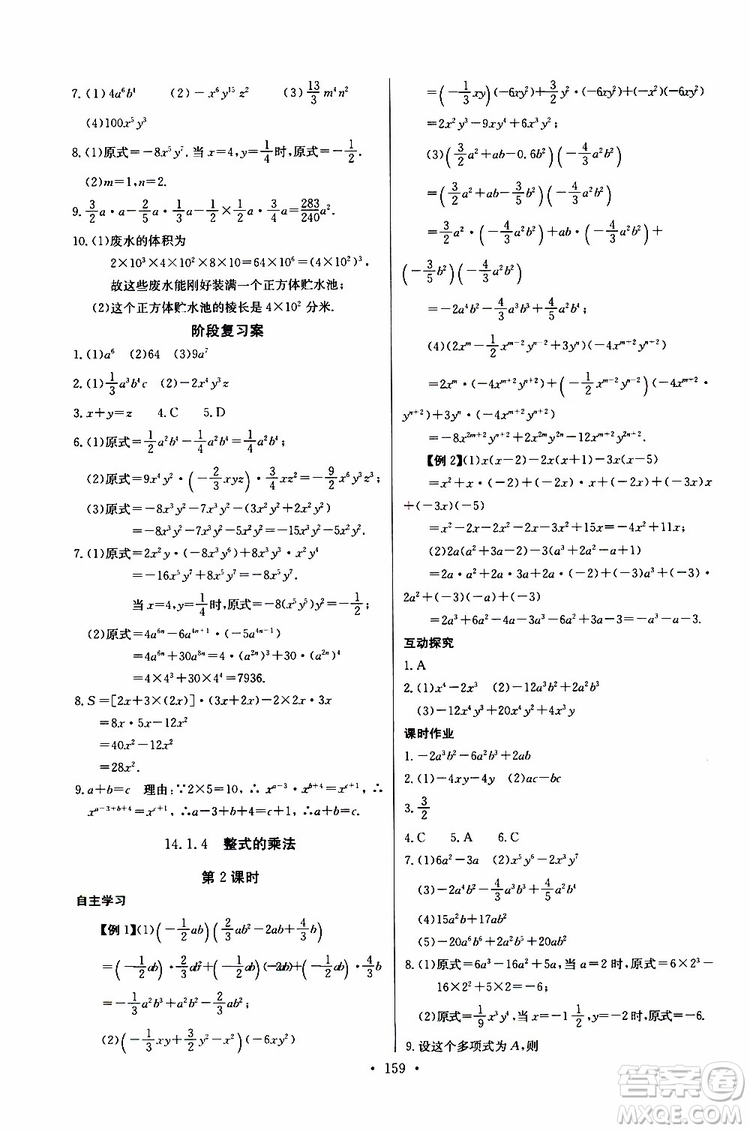 7. (1)4a⁶b⁴ (2)-x⁶y¹⁵z² (3)13/3 m⁴n²
(4)100x⁵y³
8. (1)原式=-8x⁵y⁷. 当 x=4, y=1/4 时, 原式=-1/2.
(2)m=1, n=2.
9. 3/2 a·a-2/5 a·1/3 a-1/2×1/2 a·1/4 a=283/240 a².
10. (1)废水的体积为
2×10³×4×10²×8×10=64×10⁶=(4×10²)³.
故这些废水能刚好装满一个正方体贮水池;
(2)这个正方体贮水池的棱长是 4×10² 分米.
阶段复习案
1. (1)a⁶ (2)64 (3)9a⁷
2. (1)1/3 a³b⁴c (2)-2x⁴y³z
3. x+y=z 4. C 5. D
6. (1)原式=1/2 a²b⁴-1/4 a²b⁴=1/4 a²b⁴;
(2)原式=9x⁴y²·(-2/3 xyz)·1/3 xz²=-2x⁶y³z³;
(3)原式=-8x³y³-7x³y³-(3x²y²+2x²y²)
=-8x³y³-7x³y³-5x²y²=-15x³y³-5x²y².
7. (1)原式=2x²y·(-8x³y⁶)+8x³y³·x²y⁴
=-16x⁵y⁷+8x⁵y⁷=-8x⁵y⁷.
当 x=4, y=1/4 时, 原式=(-8x⁵y⁵)y²=-1/2.
(2)原式=4a⁶ⁿ-6a⁴ⁿ⁺¹·(-5a⁴ⁿ⁻¹)
=4a⁶ⁿ+30a⁸ⁿ=4(a²ⁿ)³+30(a²ⁿ)⁴
=4×4³+30×4⁴=7936.
8. S=[2x+3×(2x)]·(3x+2x)-2×2x·3x
=8x·5x-12x²
=40x²-12x²
=28x².
9. a+b=c 理由:∵2×5=10, ∴xᵃ⁻³·xᵇ⁺⁴=xᶜ⁺¹, ∴
xᵃ⁻³⁺ᵇ⁺⁴=xᶜ⁺¹, ∴a-3+b+4=c+1, ∴a+b=c.
14.1.4 整式的乘法
第 2 课时
自主学习
【例 1】(1)(-1/2 ab)(2/3 ab²-2ab+4/3 b)
=(-1/2 ab)·2/3 ab²+(-1/2 ab)(-2ab)+(-1/2 ab)·4/3 b
=-1/3 a²b³+a²b²-2/3 ab²;
(2)(-1/3 xy+3/2 y²-x²)(-6xy²)
=(-1/3 xy)(-6xy²)+3/2 y²·(-6xy²)+(-x²)(-6xy²)
=2x²y³-9xy⁴+6x³y²;
(3)(3/2 a²+ab-0.6b²)(-4/3 a²b²)
=3/2 a²·(-4/3 a²b²)+ab·(-4/3 a²b²)+
(-3/5 b²)(-4/3 a²b²)
=-2a⁴b²-4/3 a³b³+4/5 a²b⁴;
(4)(2xᵐ-1/2 xᵐ⁻²yⁿ+3yⁿ)(-4xᵐ⁺²yⁿ⁺²)
=2xᵐ·(-4xᵐ⁺²yⁿ⁺²)+(-1/2 xᵐ⁻²yⁿ)(-4xᵐ⁺²
yⁿ⁺²)+3yⁿ·(-4xᵐ⁺²yⁿ⁺²)
=-8x²ᵐ⁺²yⁿ⁺²+2x²ᵐy²ⁿ⁺²-12xᵐ⁺²y²ⁿ⁺².
【例 2】(1)x(x-2)-2x(x+1)-3x(x-5)
=x²+x·(-2)+(-2x)·x+(-2x)+(-3x)x
+(-3x)(-5)
=x²-2x-2x²-2x-3x²+15x=-4x²+11x.
(2)2a(a²+2a-3)-3(a³+2a²-a+1)
=2a·a²+2a·2a+2a·(-3)+(-3)a³+(-3)·
2a²+(-3)(-a)+(-3)
=2a³+4a²-6a-3a³-6a²+3a-3=-a³-2a²-3a-3.
互动探究
1. A
2. (1)x⁴-2x³ (2)-12a³b²+2a²b³
(3)-12x⁴y³+20x⁴y²+4x³y
课时作业
1. -2a³b²-6a²b³+2ab
2. (1)-4xy-4y (2)ac-bc
3. 3/2
4. C 5. A 6. C
7. (1)6a²-3a (2)x⁵y⁶-x⁶y⁵
(3)-2a⁴b²-4/3 a³b³+4/5 a²b⁴
(4)15a²b²+17ab²
(5)-20a⁶b²+12a⁵b³
8. (1)原式=6a³-16a²+5a, 当 a=2 时, 原式=6×2³-
16×2²+5×2=-6;
(2)原式=1/9 x³y⁴, 当 x=2, y=… 时, 原式=-6.
9. 设这个多项式为 A, 则
· 159 ·
答案圈
MXQE.COM